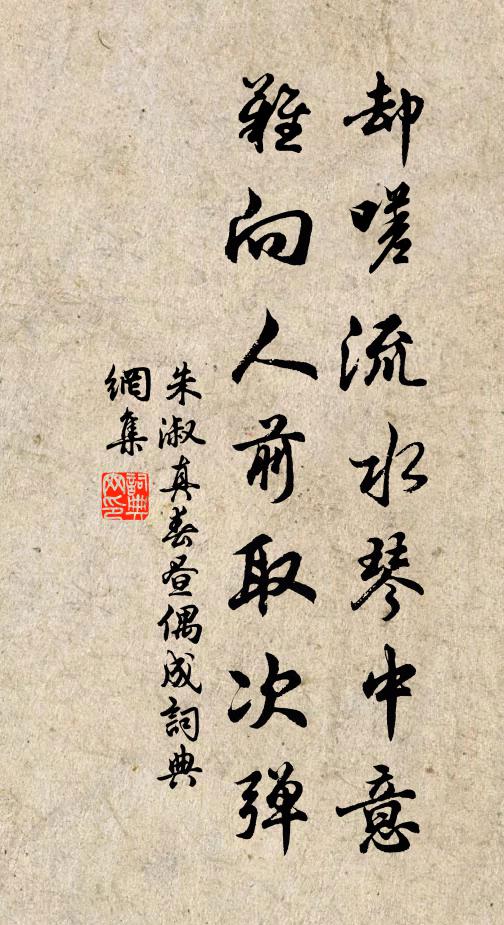 却嗟流水琴中意
難向人前取次弹
朱淑真春昼偶成詞典
網集
詞典